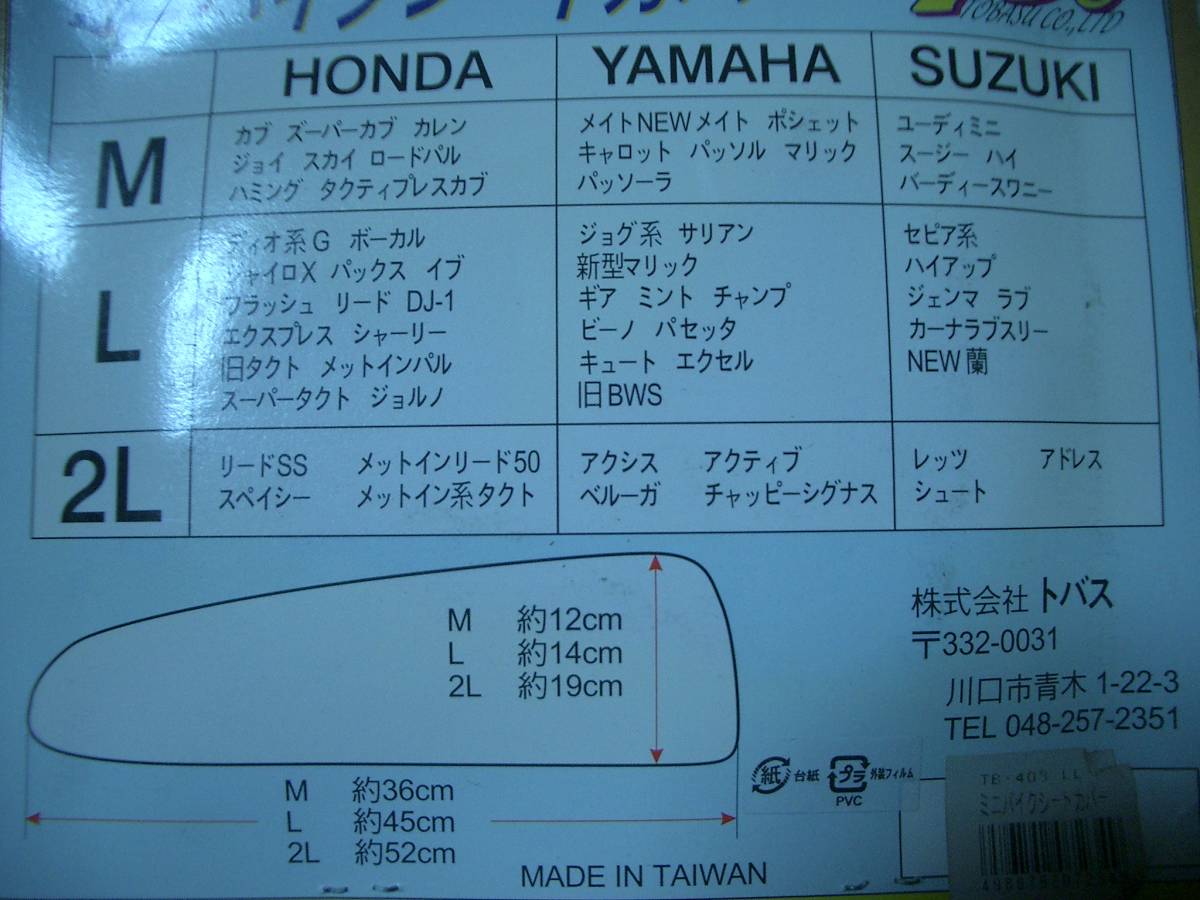 TOBASU CO.,LTD
HONDA YAMAHA SUZUKI
M
カブ ズーパーカブ カレン
ジョイ スカイ ロードパル
ハミング タクティプレスカブ
メイトNEWメイト ポシェット
キャロット パッソル マリック
パッソーラ
ユーディミニ
スージー ハイ
バーディースワニー
L
ディオ系G ボーカル
ジャイロX パックス イブ
フラッシュ リード DJ-1
エクスプレス シャーリー
旧タクト メットインパル
スーパータクト ジョルノ
ジョグ系 サリアン
新型マリック
ギア ミント チャンプ
ビーノ パセッタ
キュート エクセル
旧BWS
セピア系
ハイアップ
ジェンマ ラブ
カーナラブスリー
NEW蘭
2L
リードSS メットインリード50
スペイシー メットイン系タクト
アクシス アクティブ
ベルーガ チャッピーシグナス
レッツ アドレス
シュート
M 約12cm
L 約14cm
2L 約19cm
M 約36cm
L 約45cm
2L 約52cm
株式会社 トバス
〒332-0031
川口市青木 1-22-3
TEL 048-257-2351
紙 台紙 プラ 外装フィルム
PVC
MADE IN TAIWAN
ミニバイクシートカバー